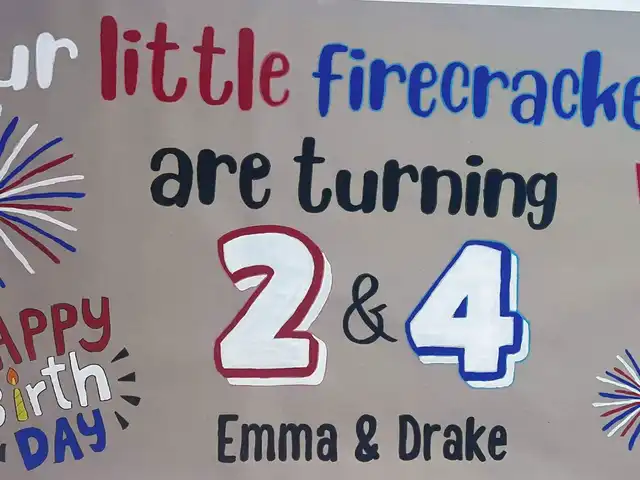 ur little firecracke
are turning
2 & 4
Emma & Drake
APPY
Birth
DAY